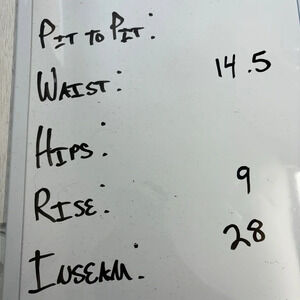 Pit to Pit:
Waist: 14.5
Hips:
Rise: 9
Inseam: 28